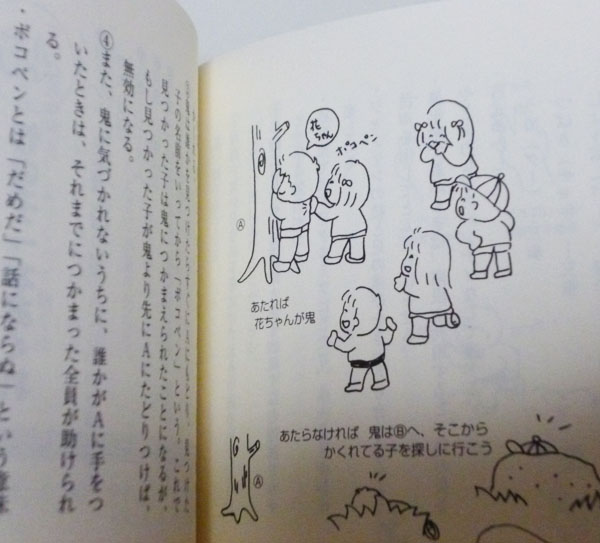 花
ちゃん
ポコペン
Ⓐ
あたれば
花ちゃんが鬼
あたらなければ 鬼はⒷへ、そこから
かくれてる子を探しに行こう
Ⓐ
鬼は誰かを見つけたらすぐにAにもどり、見つけた
子の名前をいってから「ポコペン」という。これで
見つかった子は鬼につかまえられたことになるが、
もし見つかった子が鬼より先にAにたどりつけば、
無効になる。
④また、鬼に気づかれないうちに、誰かがAに手をつ
いたときは、それまでにつかまった全員が助けられ
る。
・ポコペンとは「だめだ」「話にならぬ」という意味